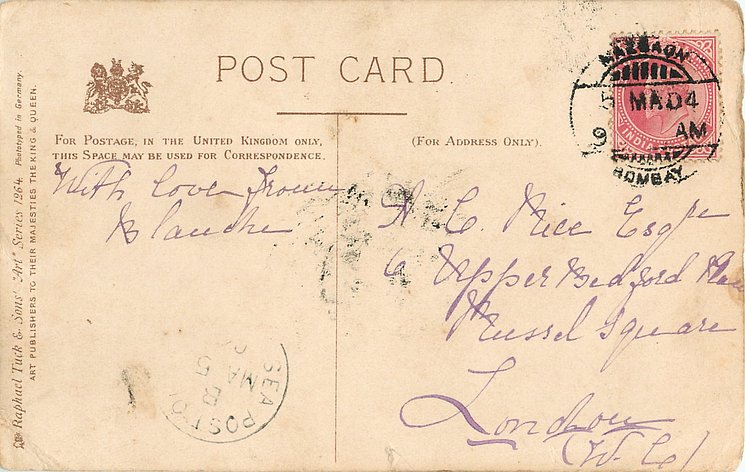 POST CARD
FOR POSTAGE, IN THE UNITED KINGDOM ONLY,
THIS SPACE MAY BE USED FOR CORRESPONDENCE.
(FOR ADDRESS ONLY).
With love from
Blanche
A. C. Rice Esqre
6 Upper Bedford Place
Russel Square
London
(W. C)
MAZGAON
5 MA 04
9 AM
BOMBAY
INDIA
SEA POST OF
B
MA 5
Raphael Tuck & Sons' "Art" Series 1264. Phototyped in Germany.
ART PUBLISHERS TO THEIR MAJESTIES THE KING & QUEEN.